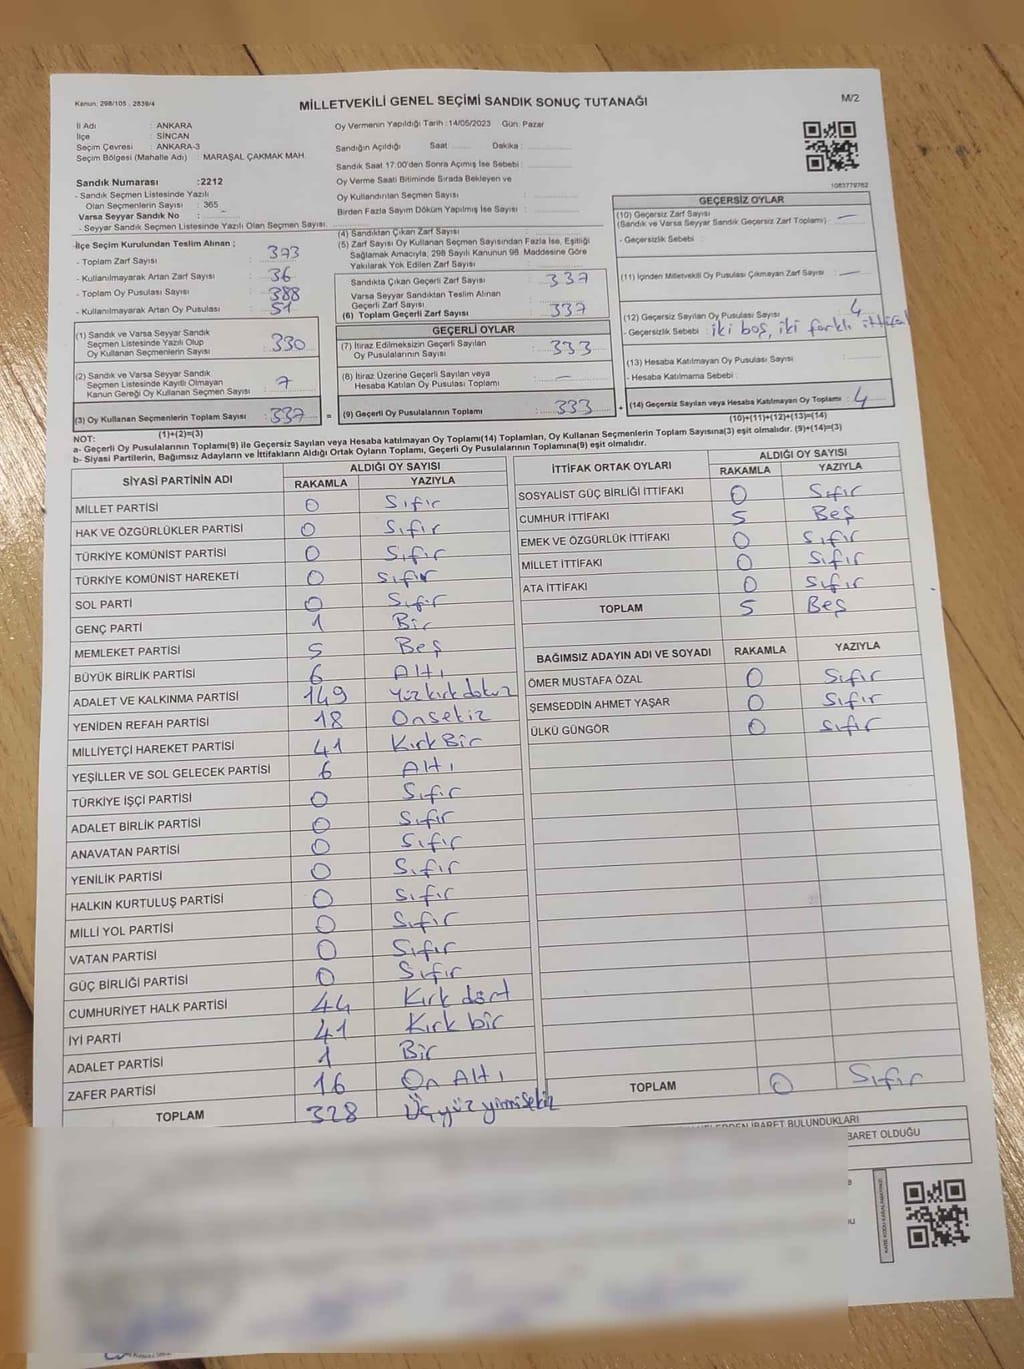 Kanun: 298/105 . 2839/4
MİLLETVEKİLİ GENEL SEÇİMİ SANDIK SONUÇ TUTANAĞI
M/2
İl Adı : ANKARA
İlçe : SİNCAN
Seçim Çevresi : ANKARA-3
Seçim Bölgesi (Mahalle Adı) : MARAŞAL ÇAKMAK MAH.
Oy Vermenin Yapıldığı Tarih :14/05/2023 Gün: Pazar
Sandığın Açıldığı Saat: Dakika :
Sandık Saat 17:00'den Sonra Açımış İse Sebebi :
Oy Verme Saati Bitiminde Sırada Bekleyen ve
Oy Kullandırılan Seçmen Sayısı :
Birden Fazla Sayım Döküm Yapılmış İse Sayısı :
1083779762
Sandık Numarası :2212
- Sandık Seçmen Listesinde Yazılı
Olan Seçmenlerin Sayısı : 365
Varsa Seyyar Sandık No :
- Seyyar Sandık Seçmen Listesinde Yazılı Olan Seçmen Sayısı
İlçe Seçim Kurulundan Teslim Alınan ;
- Toplam Zarf Sayısı : 373
- Kullanılmayarak Artan Zarf Sayısı : 36
- Toplam Oy Pusulası Sayısı : 388
- Kullanılmayarak Artan Oy Pusulası : 51
(1) Sandık ve Varsa Seyyar Sandık
Seçmen Listesinde Yazılı Olup
Oy Kullanan Seçmenlerin Sayısı : 330
(2) Sandık ve Varsa Seyyar Sandık
Seçmen Listesinde Kayıtlı Olmayan
Kanun Gereği Oy Kullanan Seçmen Sayısı : 7
(3) Oy Kullanan Seçmenlerin Toplam Sayısı : 337 =
(1)+(2)=(3)
(4) Sandıktan Çıkan Zarf Sayısı :
(5) Zarf Sayısı Oy Kullanan Seçmen Sayısından Fazla İse, Eşitliği
Sağlamak Amacıyla, 298 Sayılı Kanunun 98. Maddesine Göre
Yakılarak Yok Edilen Zarf Sayısı :
Sandıkta Çıkan Geçerli Zarf Sayısı : 337
Varsa Seyyar Sandıktan Teslim Alınan
Geçerli Zarf Sayısı
(6) Toplam Geçerli Zarf Sayısı : 337
GEÇERLİ OYLAR
(7) İtiraz Edilmeksizin Geçerli Sayılan
Oy Pusulalarının Sayısı : 333
(8) İtiraz Üzerine Geçerli Sayılan veya
Hesaba Katılan Oy Pusulası Toplamı : —
(9) Geçerli Oy Pusulalarının Toplamı : 333 +
GEÇERSİZ OYLAR
(10) Geçersiz Zarf Sayısı
(Sandık ve Varsa Seyyar Sandık Geçersiz Zarf Toplamı) : —
- Geçersizlik Sebebi :
(11) İçinden Milletvekili Oy Pusulası Çıkmayan Zarf Sayısı : —
(12) Geçersiz Sayılan Oy Pusulası Sayısı : 4
- Geçersizlik Sebebi : iki boş, iki farklı ittifak
(13) Hesaba Katılmayan Oy Pusulası Sayısı :
- Hesaba Katılmama Sebebi :
(14) Geçersiz Sayılan veya Hesaba Katılmayan Oy Toplamı : 4
(10)+(11)+(12)+(13)=(14)
NOT:
a- Geçerli Oy Pusulalarının Toplamı(9) ile Geçersiz Sayılan veya Hesaba katılmayan Oy Toplamı(14) Toplamları, Oy Kullanan Seçmenlerin Toplam Sayısına(3) eşit olmalıdır. (9)+(14)=(3)
b- Siyasi Partilerin, Bağımsız Adayların ve İttifakların Aldığı Ortak Oyların Toplamı, Geçerli Oy Pusulalarının Toplamına(9) eşit olmalıdır.
SİYASİ PARTİNİN ADI
ALDIĞI OY SAYISI
RAKAMLA YAZIYLA
MİLLET PARTİSİ 0 Sıfır
HAK VE ÖZGÜRLÜKLER PARTİSİ 0 Sıfır
TÜRKİYE KOMÜNİST PARTİSİ 0 Sıfır
TÜRKİYE KOMÜNİST HAREKETİ 0 Sıfır
SOL PARTİ 0 Sıfır
GENÇ PARTİ 1 Bir
MEMLEKET PARTİSİ 5 Beş
BÜYÜK BİRLİK PARTİSİ 6 Altı
ADALET VE KALKINMA PARTİSİ 149 Yüzkırkdokuz
YENİDEN REFAH PARTİSİ 18 Onsekiz
MİLLİYETÇİ HAREKET PARTİSİ 41 Kırk Bir
YEŞİLLER VE SOL GELECEK PARTİSİ 6 Altı
TÜRKİYE İŞÇİ PARTİSİ 0 Sıfır
ADALET BİRLİK PARTİSİ 0 Sıfır
ANAVATAN PARTİSİ 0 Sıfır
YENİLİK PARTİSİ 0 Sıfır
HALKIN KURTULUŞ PARTİSİ 0 Sıfır
MİLLİ YOL PARTİSİ 0 Sıfır
VATAN PARTİSİ 0 Sıfır
GÜÇ BİRLİĞİ PARTİSİ 0 Sıfır
CUMHURİYET HALK PARTİSİ 44 Kırk dört
İYİ PARTİ 41 Kırk bir
ADALET PARTİSİ 1 Bir
ZAFER PARTİSİ 16 On Altı
TOPLAM 328 Üçyüz yirmisekiz
İTTİFAK ORTAK OYLARI
ALDIĞI OY SAYISI
RAKAMLA YAZIYLA
SOSYALİST GÜÇ BİRLİĞİ İTTİFAKI 0 Sıfır
CUMHUR İTTİFAKI 5 Beş
EMEK VE ÖZGÜRLÜK İTTİFAKI 0 Sıfır
MİLLET İTTİFAKI 0 Sıfır
ATA İTTİFAKI 0 Sıfır
TOPLAM 5 Beş
BAĞIMSIZ ADAYIN ADI VE SOYADI RAKAMLA YAZIYLA
ÖMER MUSTAFA ÖZAL 0 Sıfır
ŞEMSEDDİN AHMET YAŞAR 0 Sıfır
ÜLKÜ GÜNGÖR 0 Sıfır
TOPLAM 0 Sıfır
İBARET BULUNDUKLARI
BARET OLDUĞU